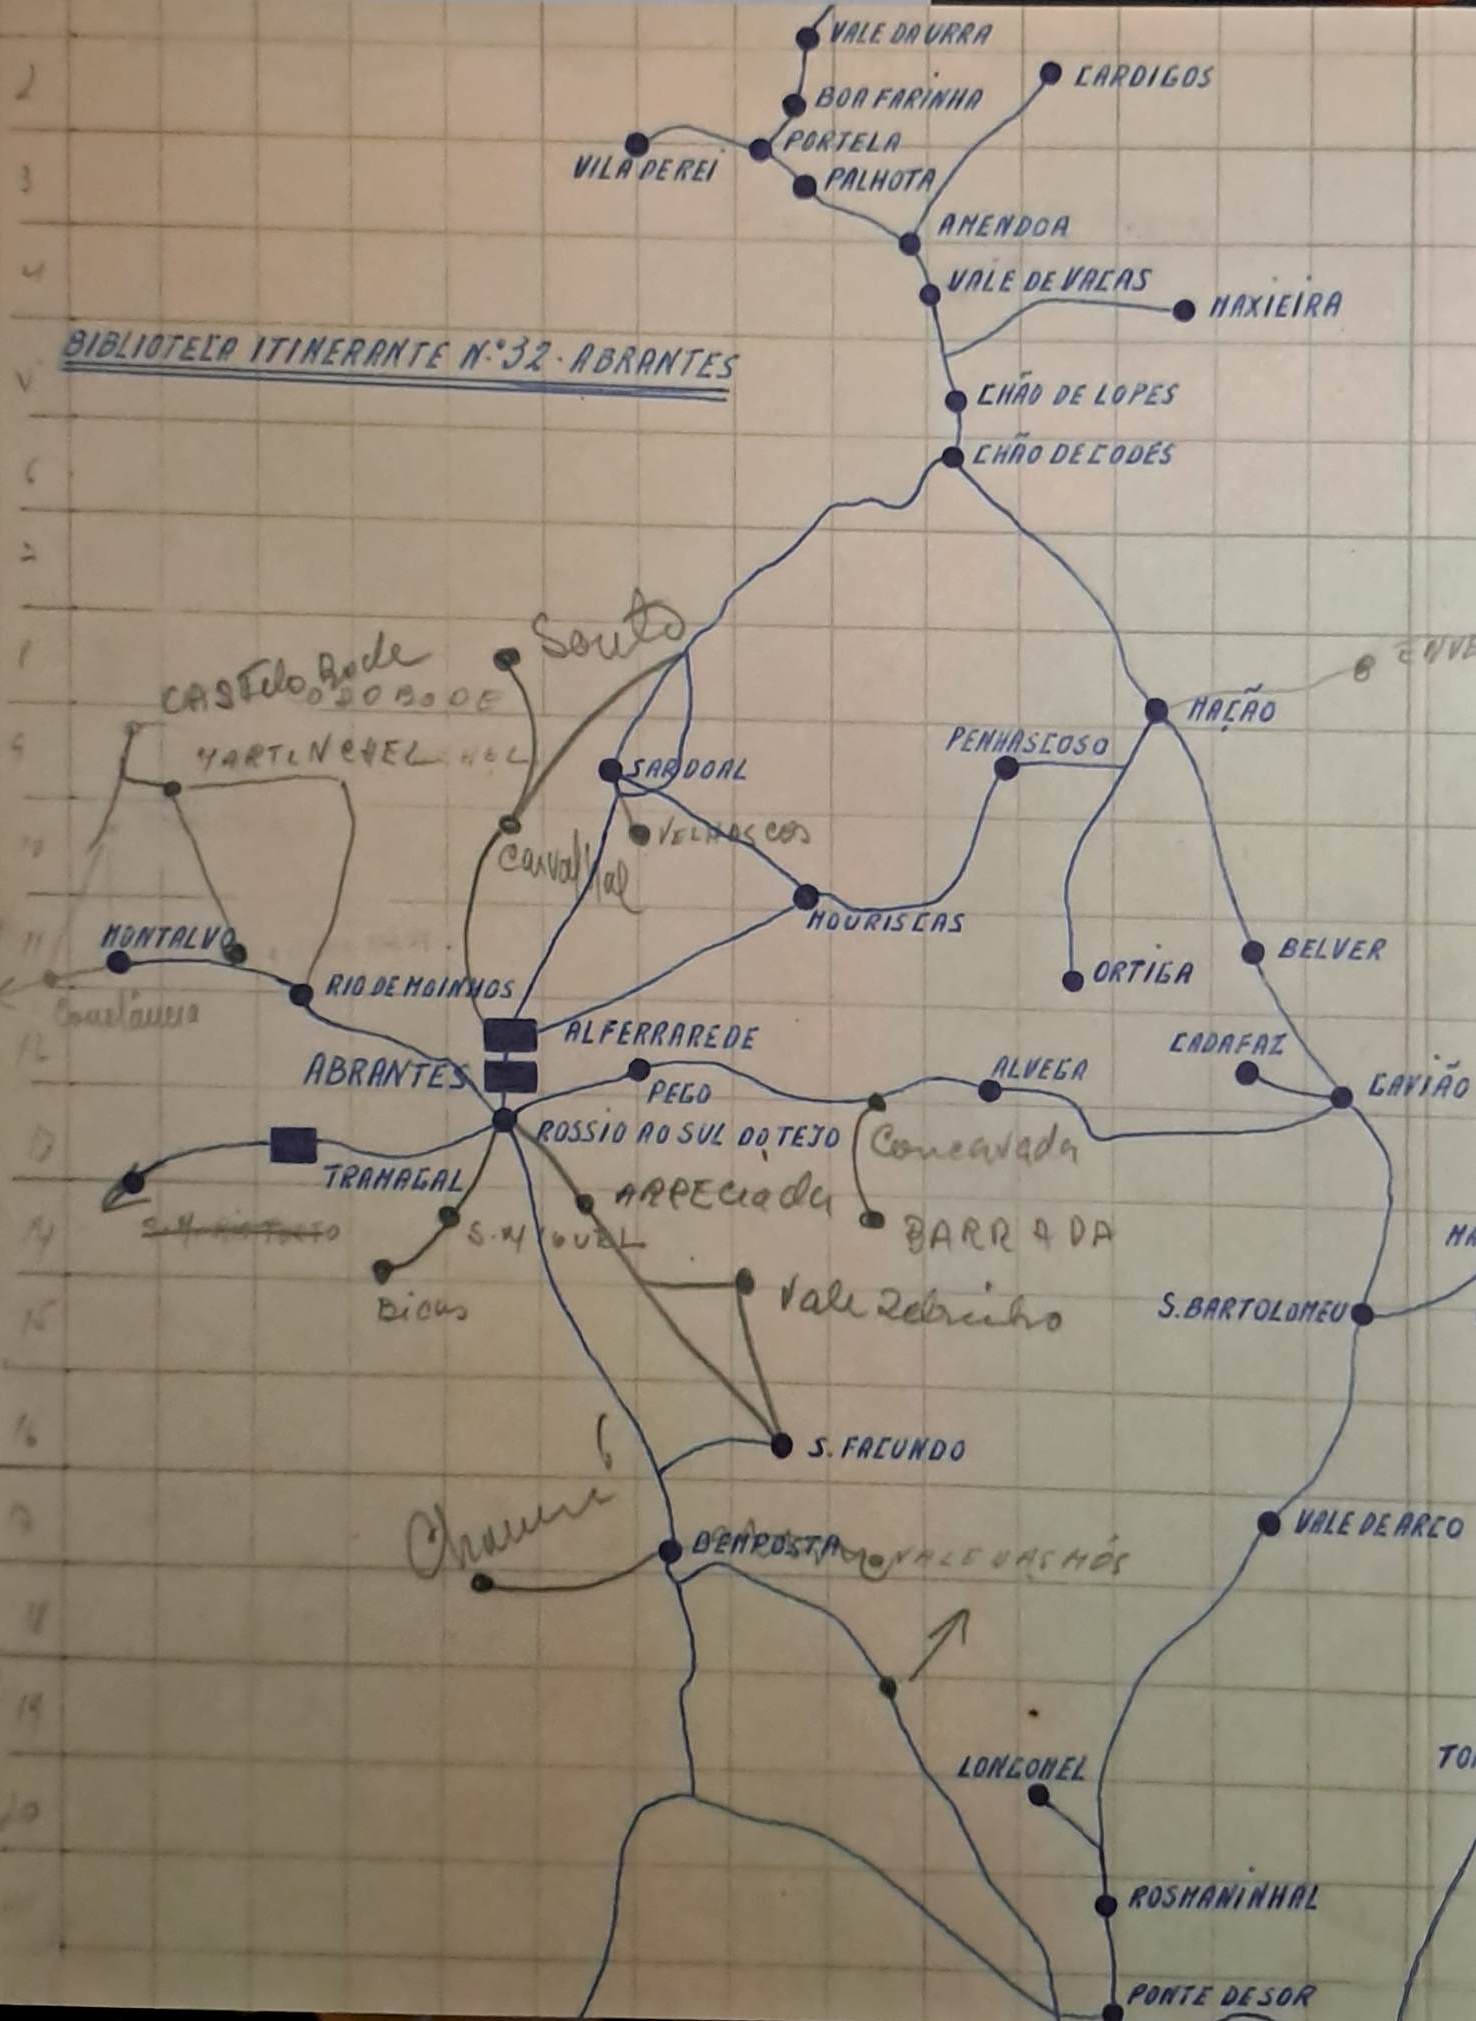 VALE DA URRA
2
CARDIGOS
BOA FARINHA
PORTELA
VILA DE REI
3
PALHOTA
AMENDOA
4
VALE DE VACAS
MAXIEIRA
BIBLIOTECA ITINERANTE N.º 32 - ABRANTES
CHÃO DE LOPES
6
CHÃO DE CODES
Souto
CASTELO Bode
O DO BODE
ENVE
MAÇÃO
9
MARTINCHEL
PENHASCOSO
SARDOAL
VELHASCOS
10
Carvalhal
MOURISCAS
11
MONTALVO
BELVER
ORTIGA
RIO DE MOINHOS
Constância
12
ALFERRAREDE
CADAFAZ
ABRANTES
ALVEGA
PEGO
GAVIÃO
13
ROSSIO AO SUL DO TEJO
Concavada
TRAMAGAL
ARRECiada
14
S. MIGUEL
BARRADA
MA
Bicas
Vale Zebrinho
15
S. BARTOLOMEU
16
S. FACUNDO
VALE DE ARCO
BEMPOSTA
VALE DAS MÓS
18
19
LONGOMEL
TOR
20
ROSMANINHAL
PONTE DE SOR